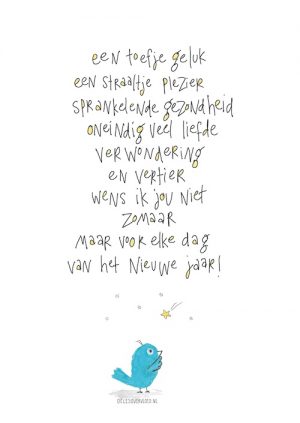 een toefje geluk
een straaltje plezier
sprankelende gezondheid
oneindig veel liefde
verwondering
en vertier
wens ik jou niet
zomaar
maar voor elke dag
van het nieuwe jaar!